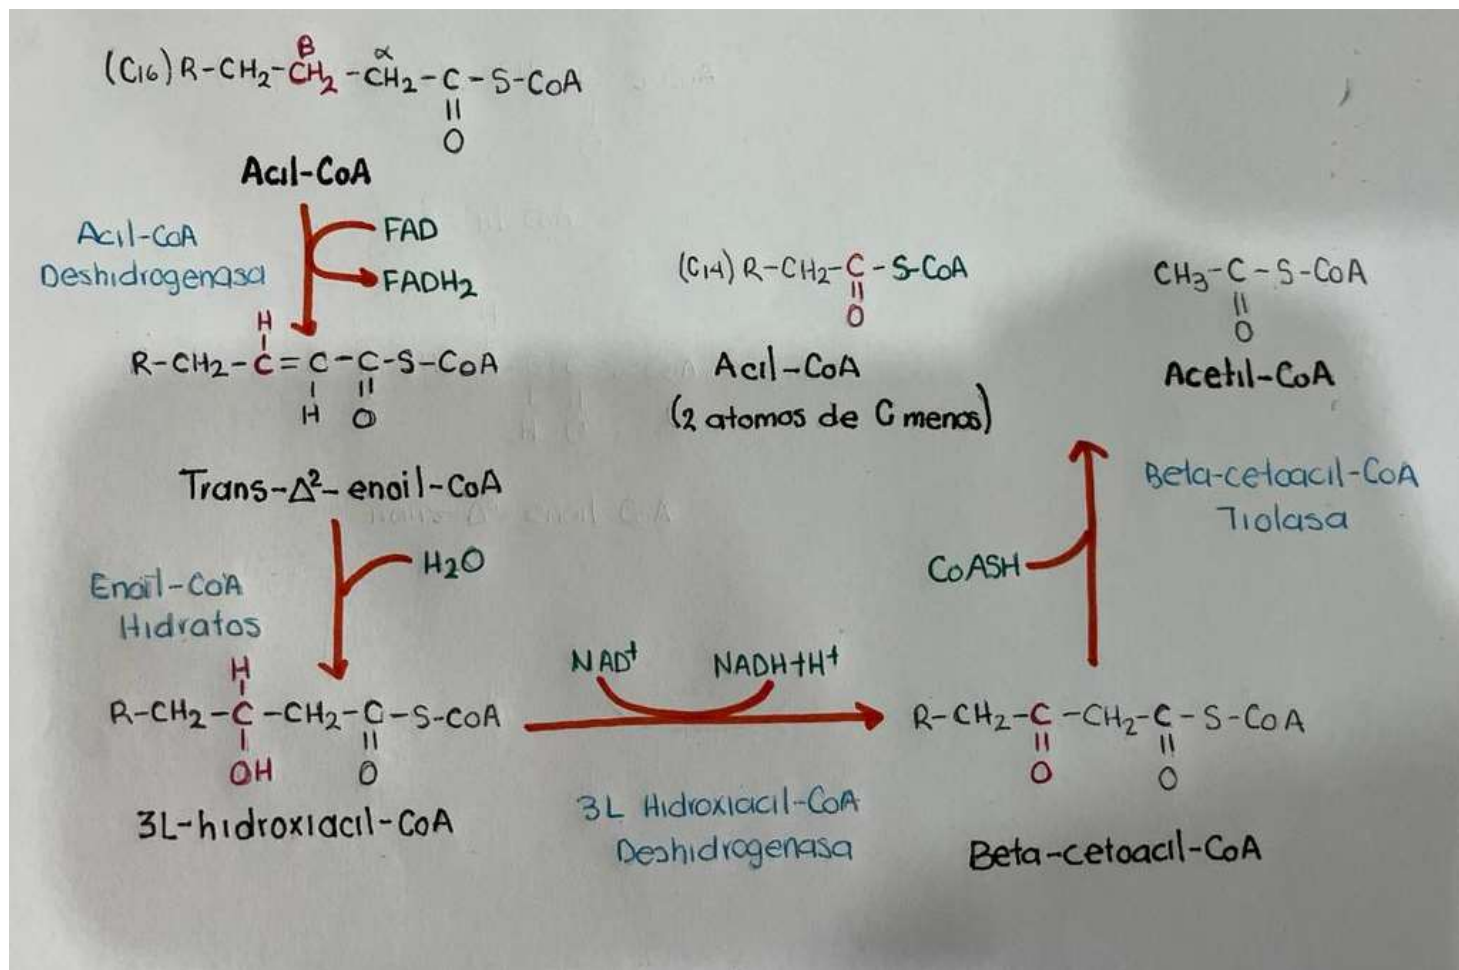 (C16) R-CH2-CH2-CH2-C-S-CoA
β
α
||
O
Acil-CoA
Acil-CoA
Deshidrogenasa
FAD
FADH2
H
R-CH2-C=C-C-S-CoA
H
||
O
Trans-Δ²-enoil-CoA
Enoil-CoA
Hidratos
H2O
H
R-CH2-C-CH2-C-S-COA
OH
||
O
3L-hidroxiacil-CoA
NAD+
NADH+H+
3L Hidroxiacil-CoA
Deshidrogenasa
R-CH2-C-CH2-C-S-CoA
||
O
||
O
Beta-cetoacil-CoA
CoASH
Beta-cetoacil-CoA
Tiolasa
(C14) R-CH2-C-S-CoA
||
O
Acil-CoA
(2 atomos de C menos)
CH3-C-S-CoA
||
O
Acetil-CoA